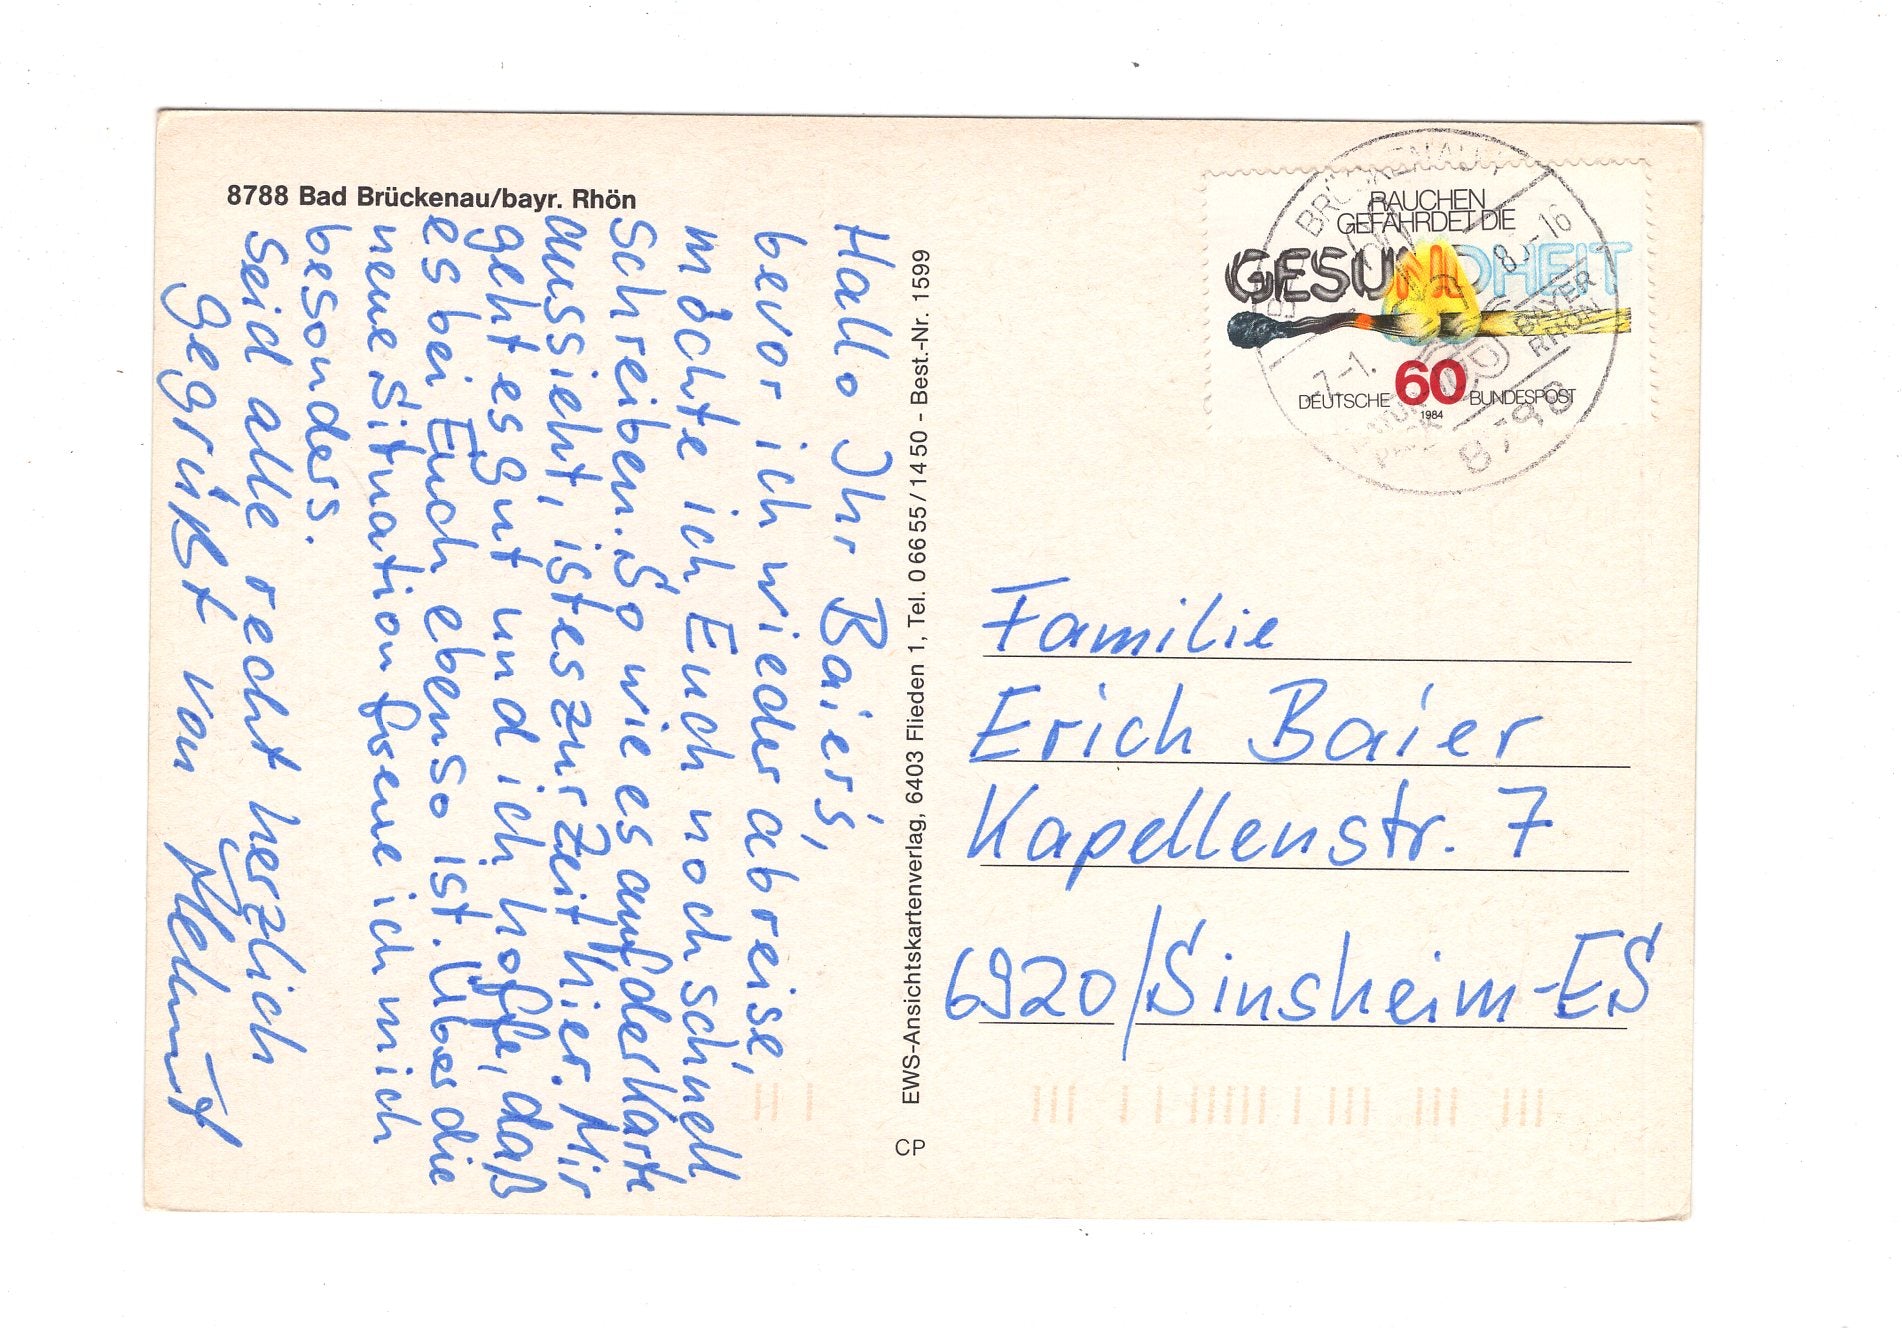 8788 Bad Brückenau/bayr. Rhön
Hallo Ihr Baier's,
bevor ich wieder abreise,
möchte ich Euch noch schnell
schreiben. So wie es auf der Karte
aussieht, ist es zur Zeit hier. Mir
geht es gut und ich hoffe, daß
es bei Euch ebenso ist. Über die
neue Situation freue ich mich
besonders.
Seid alle recht herzlich
gegrüßt von Helmut
EWS-Ansichtskartenverlag, 6403 Flieden 1, Tel. 0 66 55 / 14 50 - Best.-Nr. 1599
CP
RAUCHEN
GEFÄHRDET DIE
GESUNDHEIT
DEUTSCHE 60 BUNDESPOST
1984
BAYER
RHÖN
Familie
Erich Baier
Kapellenstr. 7
6920/Sinsheim-ES